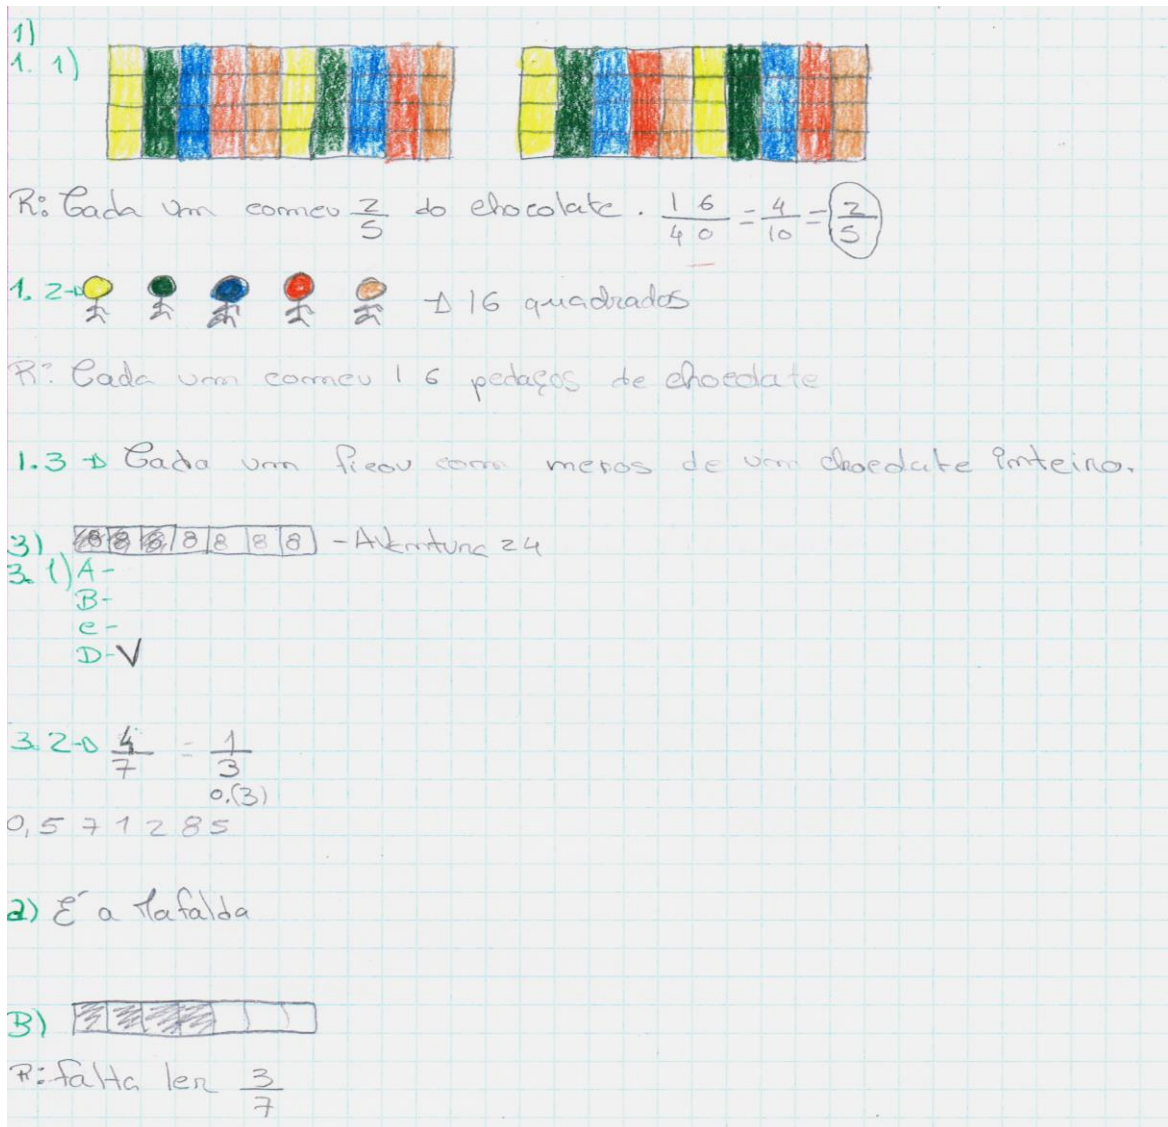 1)
1. 1)
R: Cada um comeu 2/5 do chocolate. 16/40 = 4/10 = 2/5
1. 2→ → 16 quadrados
R: Cada um comeu 16 pedaços de chocolate
1.3 → Cada um ficou com menos de um chocolate inteiro.
3) 8 8 8 8 8 8 8 - Aventura 24
3. 1) A-
B-
C-
D-V
3. 2→ 4/7 = 1/3
0,(3)
0,571285
a) É a Mafalda
B)
R: falta ler 3/7